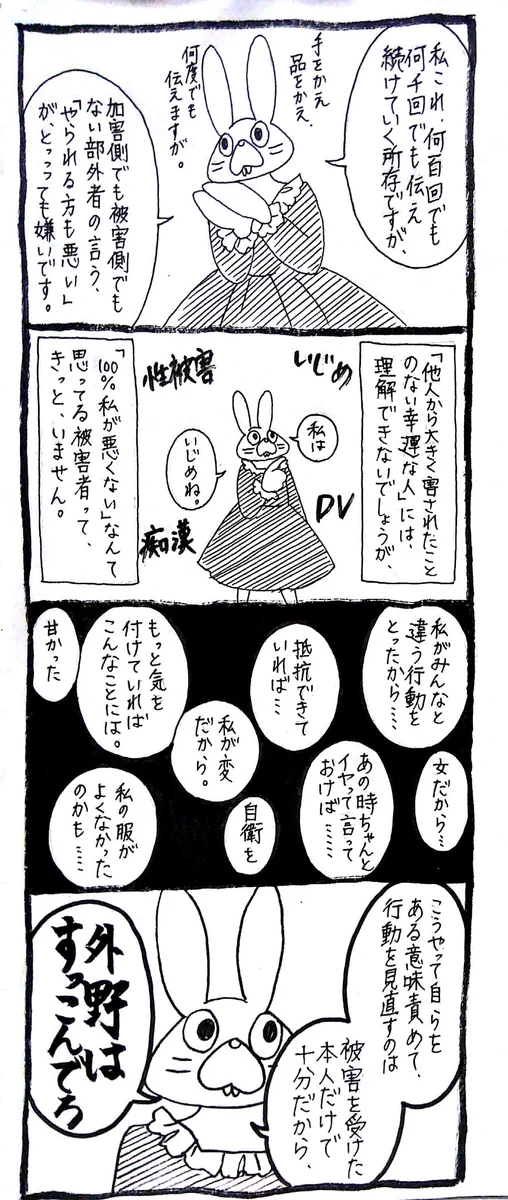 私これ、何百回でも
何千回でも伝え
続けていく所存ですが、
手をかえ
品をかえ、
何度でも
伝えますが。
加害側でも被害側でも
ない部外者の言う、
「やられる方も悪い」
が、とっっても嫌いです。
「他人から大きく害されたこと
のない幸運な人」には、
理解できないでしょうが、
いじめ
性被害
私は
いじめね。
DV
痴漢
「100%私が悪くない」なんて
思ってる被害者って、
きっと、いません。
私がみんなと
違う行動を
とったから……
抵抗できて
いれば…
もっと気を
付けていれば
こんなことには。
甘かった
女だから…
あの時ちゃんと
イヤって言って
おけば……
私が変
だから。
自衛を
私の服が
よくなかった
のかも……
こうやって自らを
ある意味責めて、
行動を見直すのは
被害を受けた
本人だけで
十分だから、
外野は
すっこんでろ